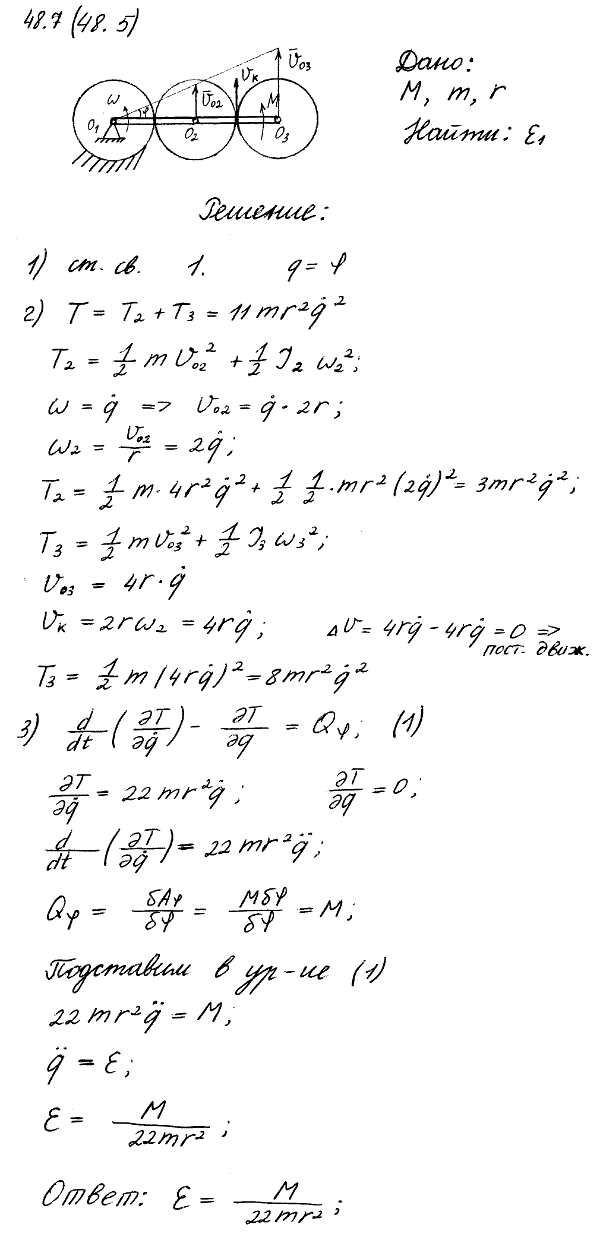 48.7 (48.5)
Дано:
M, m, r
Найти: ε₁
ω φ V̄₀₂ V_K M V̄₀₃
O₁ O₂ O₃
Решение:
1) ст. св. 1. q = φ
2) T = T₂ + T₃ = 11mr²q̇²
T₂ = 1/2 m V₀₂² + 1/2 J₂ ω₂²;
ω = q̇ => V₀₂ = q̇·2r;
ω₂ = V₀₂/r = 2q̇;
T₂ = 1/2 m·4r²q̇² + 1/2 1/2·mr²(2q̇)² = 3mr²q̇²;
T₃ = 1/2 m V₀₃² + 1/2 J₃ ω₃²;
V₀₃ = 4r·q̇
V_K = 2rω₂ = 4rq̇; ΔV = 4rq̇ − 4rq̇ = 0 =>
пост. движ.
T₃ = 1/2 m (4rq̇)² = 8mr²q̇²
3) d/dt (∂T/∂q̇) − ∂T/∂q = Q_φ; (1)
∂T/∂q̇ = 22mr²q̇; ∂T/∂q = 0;
d/dt (∂T/∂q̇) = 22mr²q̈;
Q_φ = δA_φ/δφ = Mδφ/δφ = M;
Подставим в ур-ие (1)
22mr²q̈ = M;
q̈ = ε;
ε = M/22mr²;
Ответ: ε = M/22mr²;